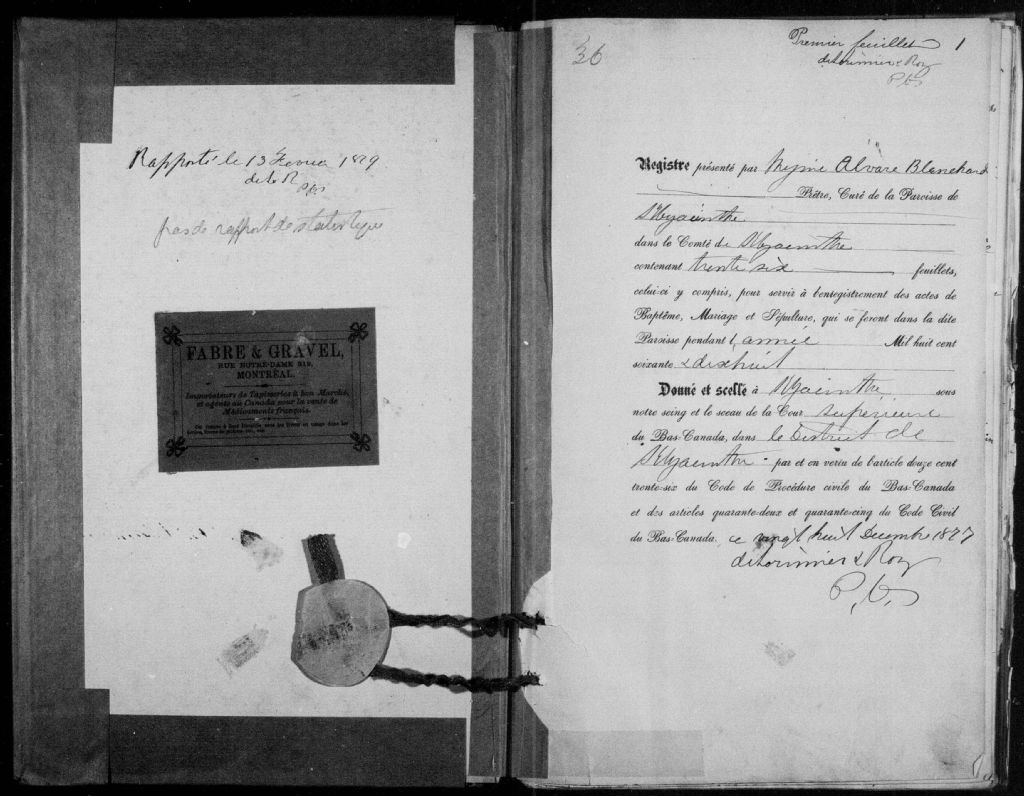 Rapporté le 13 Fevrier 1879
de L & R
P.C.S.
pas de rapport de statistique
FABRE & GRAVEL,
RUE NOTRE-DAME 219,
MONTREAL.
Importateurs de Tapisseries à bon Marché,
et agents au Canada pour la vente de
Médicaments français.
36
Premier feuillet 1
deLorimier & Roy
P.C.S.
Registre présenté par Alvare Blanchard
Prêtre, Curé de la Paroisse de
St Hyacinthe
dans le Comté de St Hyacinthe
contenant trente six feuillets,
celui-ci y compris, pour servir à l'enregistrement des actes de
Baptême, Mariage et Sépulture, qui se feront dans la dite
Paroisse pendant l'année Mil huit cent
soixante & dix huit
Donné et scellé à St Hyacinthe, sous
notre seing et le sceau de la Cour Supérieure
du Bas-Canada, dans le District de
St Hyacinthe par et en vertu de l'article douze cent
trente-six du Code de Procédure civile du Bas-Canada
et des articles quarante-deux et quarante-cinq du Code Civil
du Bas-Canada, ce vingt huit Decembre 1877
deLorimier & Roy
P.C.S.